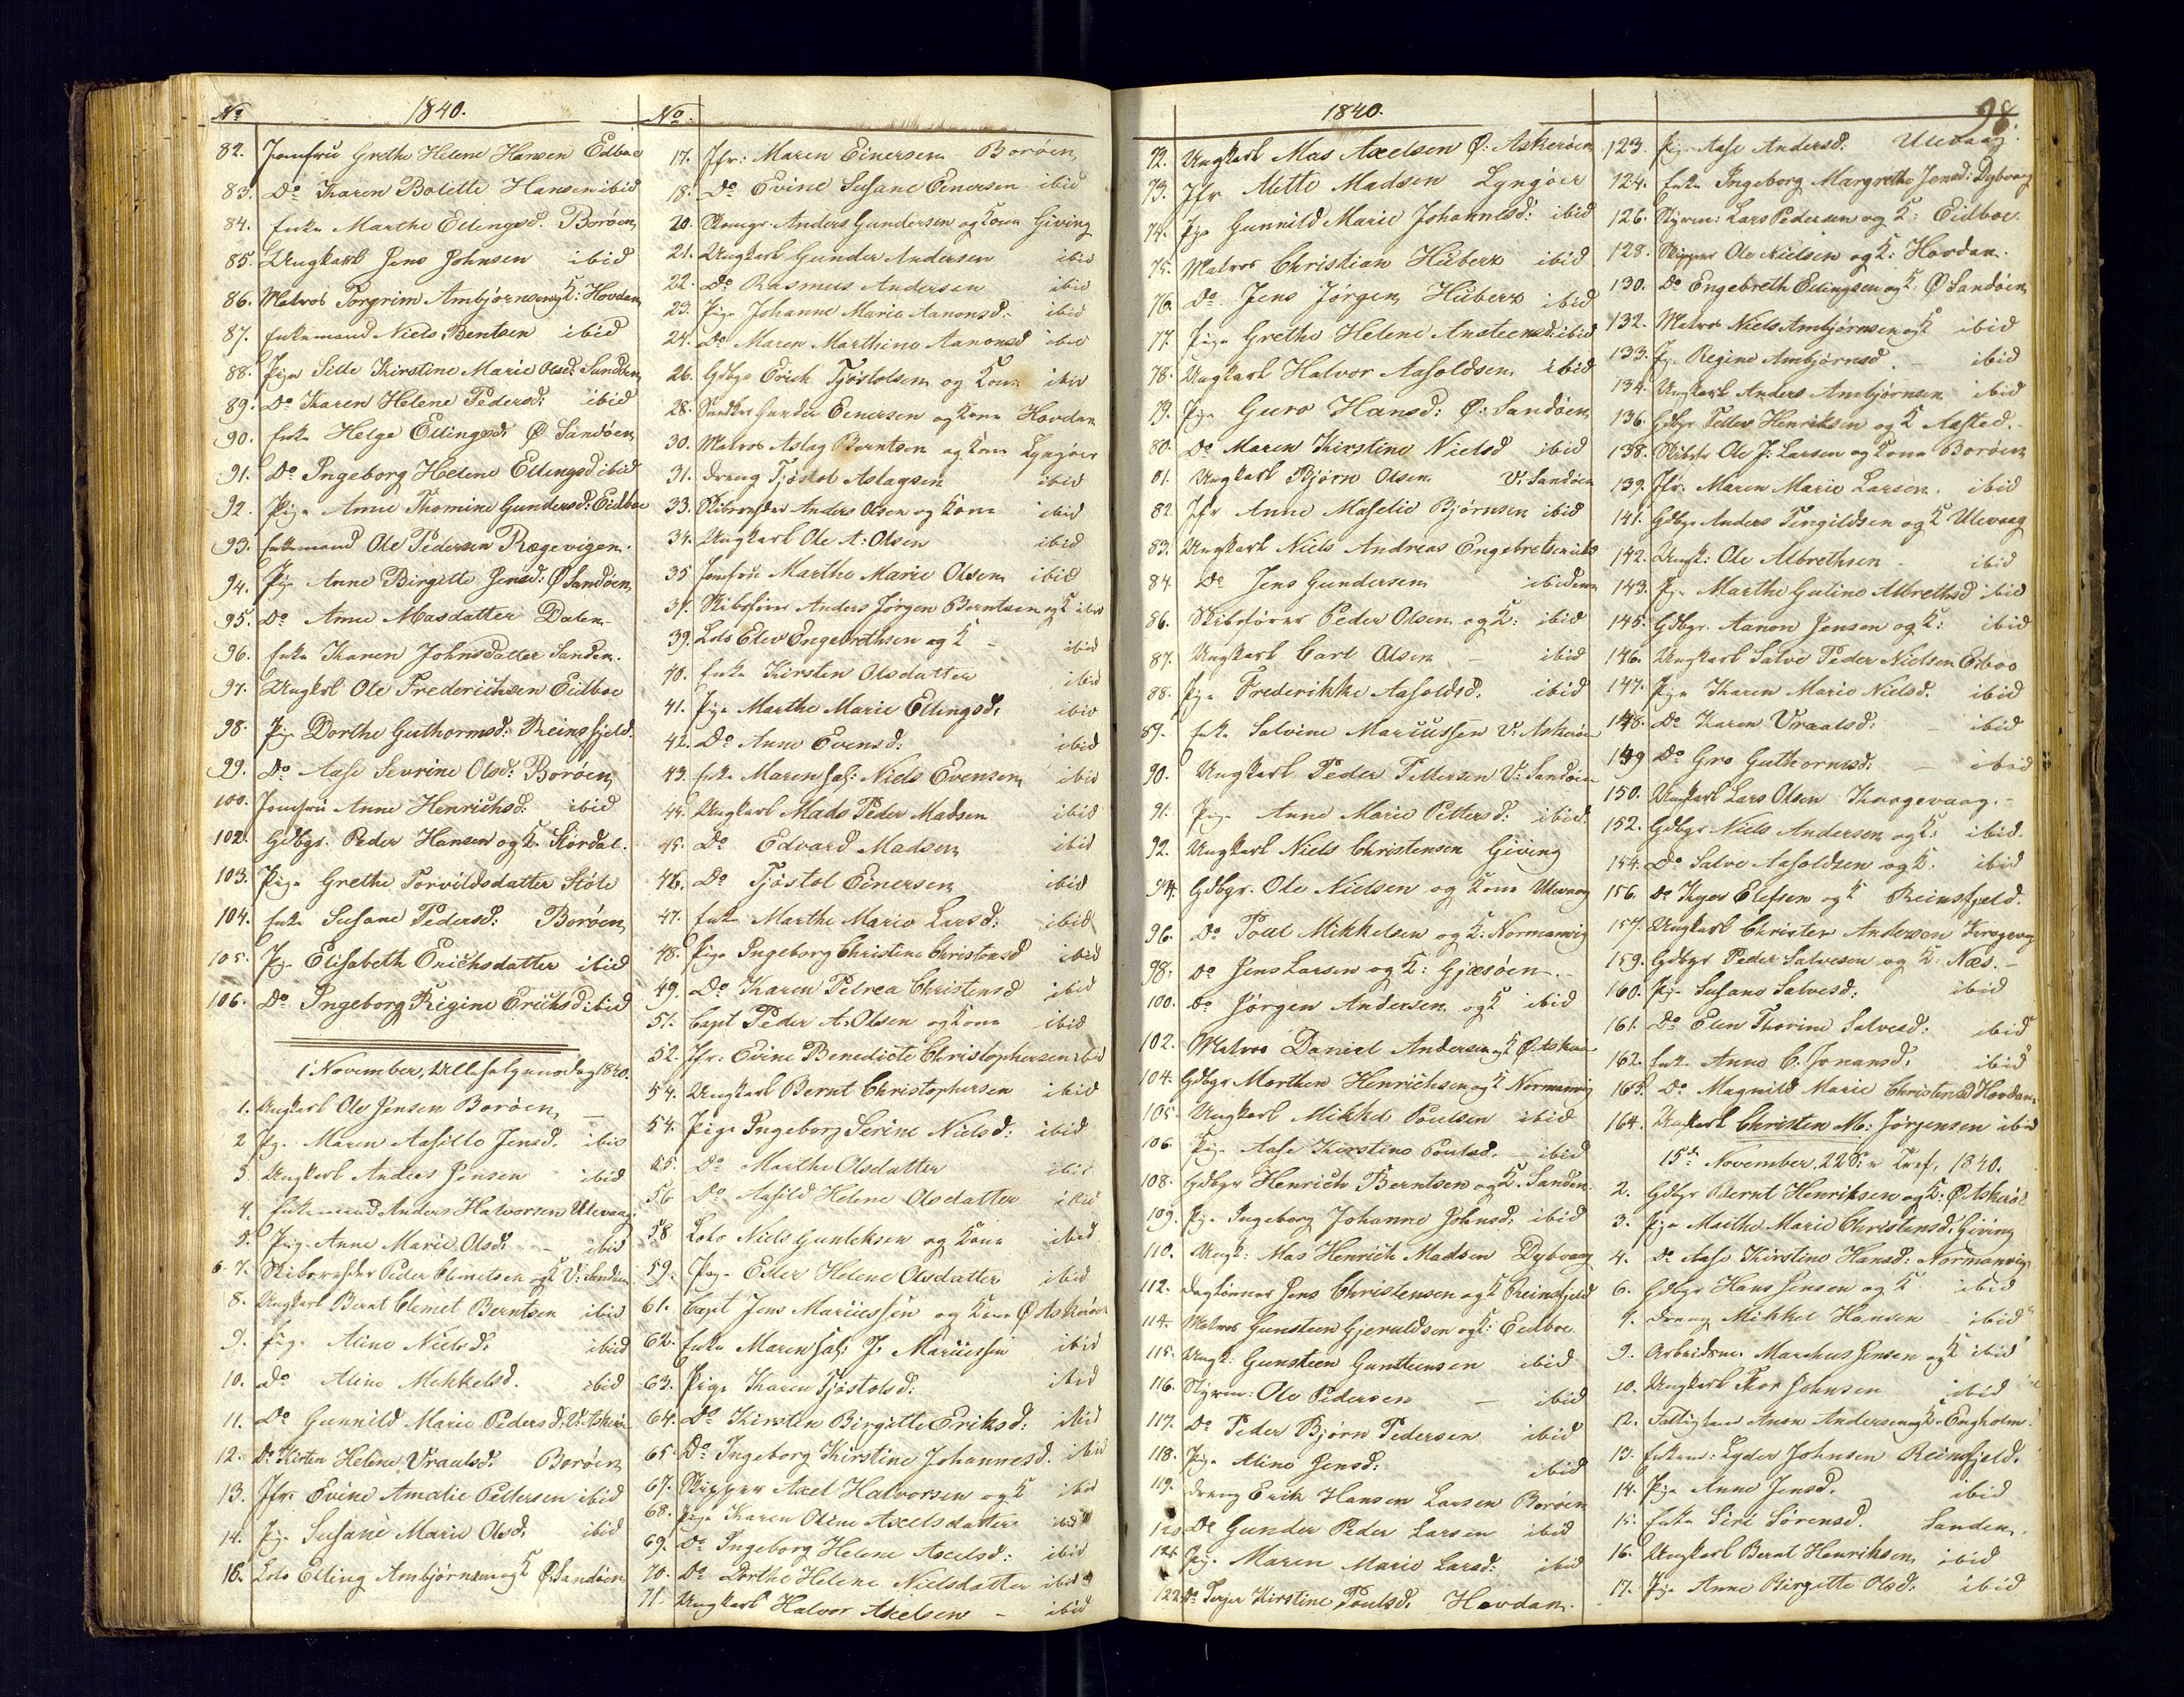 No 1840.
82. Jomfru Grethe Helene Hansen Eidboe
83. Do Karen Bolette Hansen ibid
84. Enke Marthe Ellingsd. Borøen
85. Ungkarl Jens Johnsen ibid
86. Matros Torgrim Ambjørnsen og K: Hovdan
87. Enkemand Niels Bentsen ibid
88. Pige Sille Kirstine Marie Olsd: Sanden
89. Do Karen Helene Pedersd: ibid
90. Enke Helge Ellingsd: Ø Sandøen
91. Do Ingeborg Helene Ellingsd ibid
92. Pige Anne Thomine Gundersd: Eidboe
93. Enkemand Ole Pedersen Rægevigen.
94. Pige Anne Birgitte Jensd: Ø Sandøen
95. Do Anne Masdatter Dalen
96. Enke Karen Johnsdatter Sanden.
97. Ungkrl Ole Frederichsen Eidboe
98. Pig Dorthe Guthormsd: Reinsfjeld.
99. Do Aase Sevrine Olsd: Borøen
100. Jomfru Anne Henrichsd: ibid
102. Gdbgr. Peder Hansen og K. Stordal.
103. Pige Grethe Torvildsdatter Støle
104. Enke Susane Pedersd: Borøen
105. Pg. Elisabeth Erichsdatter ibid
106. Do Ingeborg Regine Erichsd: ibid
1 November, Allehelgensdag 1840.
1. Ungkarl Ole Jensen Borøen
2 Pg. Maren Aasille Jensd. ibid
3 Ungkarl Anders Jensen ibid
4. Enkemand Anders Halvorsen Ulevaag
5. Pig. Anne Marie Olsd: ibid
6-7. Skibsreder Peder Clemetsen og K V: Sandøen
8. Ungkarl Bernt Clemet Berntsen ibid
9. Pige Aline Nielsd: ibid
10. Do Aline Mikkelsd. ibid
11. Do Gunnild Marie Pedersd: V: Askerø
12. Do Kirsten Helene Vraalsd: Borøen
13. Jfr: Evine Amalie Pettersen ibid
14. Pig. Susane Marie Olsd. ibid
16. Lods Elling Ambjørnsen og K Ø Sandøen
No.
17. Jfr: Maren Einersen Borøen
18. Do Evine Susane Einersen ibid
20. Anders Gundersen og Kone Giving
21. Ungkarl Gunder Andersen ibid
22. Do Rasmus Andersen ibid
23. Pige Johanne Maria Aanonsd: ibid
24. Do Maren Marthine Aanonsd ibid
26. Gdbgr Erich Tjøstolsen og Kone ibid
28. Gunder Einersen og Kone Hovdan
30. Matros Aslag Berntsen og Kone Lyngøer
31. Dreng Tjøstol Aslagsen ibid
33. Skibsreder Anders Olsen og Kone ibid
34. Ungkarl Ole A: Olsen ibid
35 Jomfru Marthe Marie Olsen ibid
37. Skibsfører Anders Jørgen Berntsen og K ibid
39. Lods Elev Engebrethsen og K ibid
40. Enke Kirsten Olsdatter ibid
41. Pige Marthe Marie Ellingsd. ibid
42. Do Anne Evensd: ibid
43. Enke Maren sal: Niels Evensen ibid
44. Ungkarl Mads Peder Madsen ibid
45. Do Edvard Madsen ibid
46. Do Tjøstol Einersen ibid
47. Enke Marthe Marie Larsd: ibid
48. Pige Ingeborg Christine Christensd ibid
49. Do Karen Petrea Christensd ibid
51. Capt Peder A: Olsen og Kone ibid
52. Jfr: Evine Benedicte Christophersen ibid
54. Ungkarl Bernt Christophersen ibid
54. Pige Ingeborg Serine Nielsd: ibid
55. Do Marthe Olsdatter ibid
56 Do Aasild Helene Olsdatter ibid
58 Lods Niels Gunleksen og Kone ibid
59. Pige Eder Helene Olsdatter ibid
61. Capt Jens Mariussen og Kone Ø Askerøen
62. Enke Maren sal: J. Mariussen ibid
63. Pige Karen Tjøstolsd: ibid
64. Do Kirsten Birgitte Eriksd: ibid
65. Do Ingeborg Kirstine Johannesd. ibid
67. Skipper Axel Halvorsen og K ibid
68. Pige Karen Oline Axelsdatter ibid
69. Do Ingeborg Helene Axelsd: ibid
70. Do Dorthe Helene Nielsdatter ibid
71. Ungkarl Halvor Axelsen ibid
1840.
72. Ungkarl Mas Axelsen Ø: Askerøen
73. Jfr Mette Madsen Lyngøer
74. Pge Gunnild Marie Johannesd: ibid
75. Matros Christian Hüberz ibid
76. Do Jens Jørgen Hüberz ibid
77. Pige Grethe Helene Anstensd: ibid
78. Ungkarl Halvor Aasoldsen ibid
79. Pge Guro Hansd: Ø: Sandøen
80. Do Maren Kirstine Nielsd ibid
81. Ungkarl Bjørn Olsen V: Sandøen
82. Jfr Anne Maselie Bjørnsen ibid
83. Ungkarl Niels Andreas Engebretsen ibid
84. Do Jens Gundersen ibidem
86. Skibsfører Peder Olsen og K: ibid
87. Ungkarl Carl Olsen ibid
88. Pige Frederikke Aasoldsd: ibid
89. Enke Salvine Mariussen V: Askerøen
90. Ungkarl Peder Pettersen V: Sandøen
91. Pige Anne Marie Pettersd: ibid:
92. Ungkarl Niels Christensen Giving
94. Gdbgr. Ole Nielsen og Kone Ulevaag
96. Do Poul Mikkelsen og K: Normanvig
98. Do Jens Larsen og K: Gjæsøen
100. Do Jørgen Andersen og K ibid
102. Matros Daniel Andersen og K Ø Askerøe
104. Gdbgr Morthen Henrichsen og K Normanvig
105. Ungkarl Mikkel Poulsen ibid
106. Pig. Aase Kirstine Poulsd. ibid
108. Gdbgr Henrich Berntsen og K. Sanden
109. Pig. Ingeborg Johanne Johnsd: ibid
110. Ungk: Mas Henrich Madsen Dybvaag
112. Dagløner Jens Christensen og K Reinsfjeld
114. Matros Gunsteen Gjeruldsen og K: Eidboe
115. Ungk: Gunsteen Gunsteensen ibid
116. Styrm: Ole Pedersen ibid
117. Do Peder Bjørn Pedersen ibid
118. Pg. Aline Jensd: ibid
119. Dreng Erik Hansen Larsen Borøen
120 Do Gunder Peder Larsen ibid
121. Pg. Maren Marie Larsd: ibid
122 Do Terjer Kirstine Poulsd. Hovdan.
98.
123. Pg. Aase Andersd. Ulevaag
124. Enke Ingeborg Margrethe Jensd: Dybvaag
126. Styrm: Lars Pedersen og K: Eidboe
128. Skipper Ole Nielsen og K: Hovdan.
130. Do Engebreth Ellingsen og K: Ø Sandøen
132. Matros Niels Ambjørnsen og K ibid
133. Pg. Regine Ambjørnsd. ibid
134. Ungkarl Anders Ambjørnsen ibid
136. Gdbgr Tellev Henriksen og K Aasted.
138. Ole J: Larsen og Kone Borøen
139. Jfr: Maren Marie Larsen. ibid
141. Gdbgr Anders Tengildsen og K Ulevaag
142. Ungk: Ole Albrethsen ibid
143. Pg. Marthe Guline Albrethsd ibid
145. Gdbgr. Aanon Jensen og K: ibid
146. Ungkarl Salve Peder Nielsen Eidboe
147. Pige Karen Marie Nielsd. ibid
148. Do Karen Vraalsd: ibid
149 Do Gro Guthormsd: ibid
150. Ungkarl Lars Olsen Krogevaag.
152. Gdbgr Niels Andersen og K: ibid.
154. Do Salve Aasoldsen og K. ibid
156. Do Elefsen og K Reinsfjeld.
157. Ungkarl Christen Andersen Krogevaag
159. Gdbgr Peder Salvesen og K: Næs.
160. Pg. Susane Salvesd: ibid
161. Do Elen Thorine Salvesd: ibid
162. Enke Anne C. Jonansd. ibid
163. Do Magnild Marie Christensd Hovdan
164. Ungkarl Christen M: Jørgensen ibid
15de November, 22 S: e Tref. 1840.
2. Gdbgr Bernt Henriksen og K: Ø Askerø
3. Pige Marthe Marie Christensd. Giving
4. Do Aase Kirstine Hansd: Normanvig
6. Gdbgr Hans Jensen og K ibid
7. Dreng Mikkel Hansen ibid
9. Arbeidsm. Marchus Jensen og K ibid
10. Ungkarl Thor Johnsen ibid
12. Anon Andersen og K. Engholm.
13. Enkem: Lyder Johnsen Reinsfjeld.
14. Pige Anne Jensd. ibid
15. Enke Siri Sørensd. Sanden.
16. Ungkarl Bernt Henriksen ibid
17. Pig Anne Birgitte Olsd. ibid